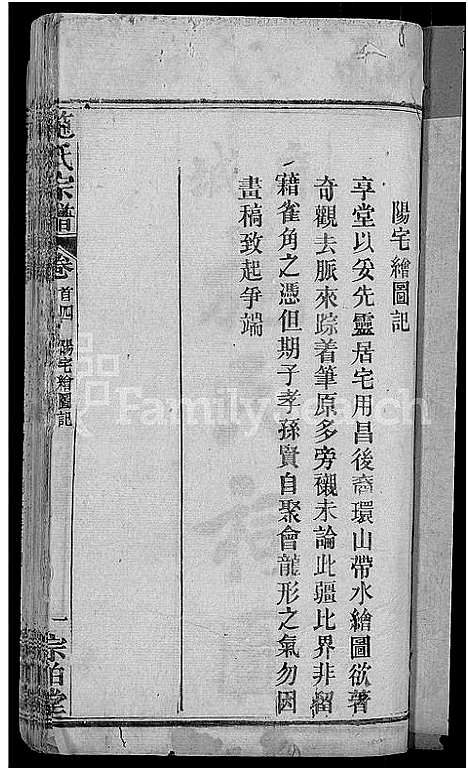 陽宅繪圖記
享堂以妥先靈居宅用昌後裔環山帶水繪圖欲著
奇觀去脈來踪着筆原多旁襯未論此疆比界非留
藉雀角之憑但期子孝孫賢自聚會龍形之氣勿因
畫稿致起爭端
范氏宗譜
卷首四
陽宅繪圖記
一
宗伯堂
FamilySearch